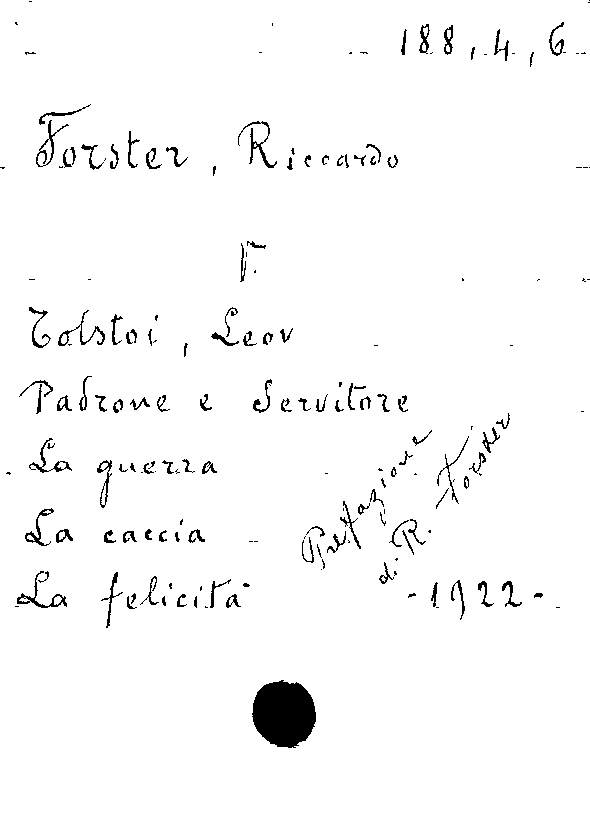 188, 4, 6
Forster, Riccardo
V.
Tolstoi, Leov
Padrone e Servitore
La guerra
La caccia
La felicità
Prefazione
di R. Forster
-1922-